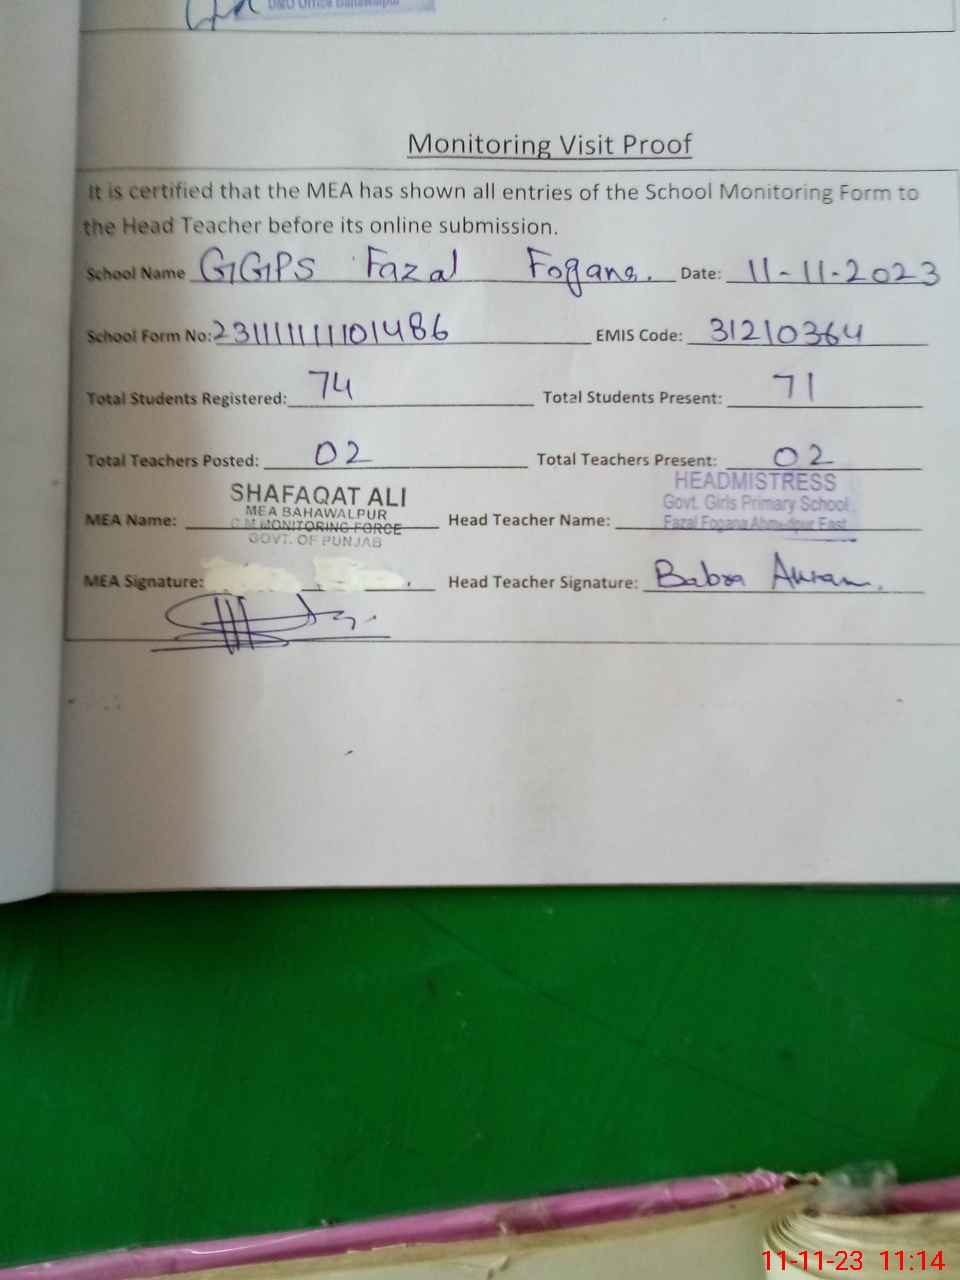 D&O Office Bahawalpur
Monitoring Visit Proof
It is certified that the MEA has shown all entries of the School Monitoring Form to
the Head Teacher before its online submission.
School Name GGPS Fazal Fogana. Date: 11-11-2023
School Form No: EMIS Code: 31210364
Total Students Registered: 74 Total Students Present: 71
Total Teachers Posted: 02 Total Teachers Present: 02
MEA Name: SHAFAQAT ALI
MEA BAHAWALPUR
C.M MONITORING FORCE
GOVT. OF PUNJAB
Head Teacher Name: HEADMISTRESS
Govt. Girls Primary School,
Fazal Fogana Ahmedpur East
MEA Signature: Head Teacher Signature: Babra Akram.
11-11-23 11:14